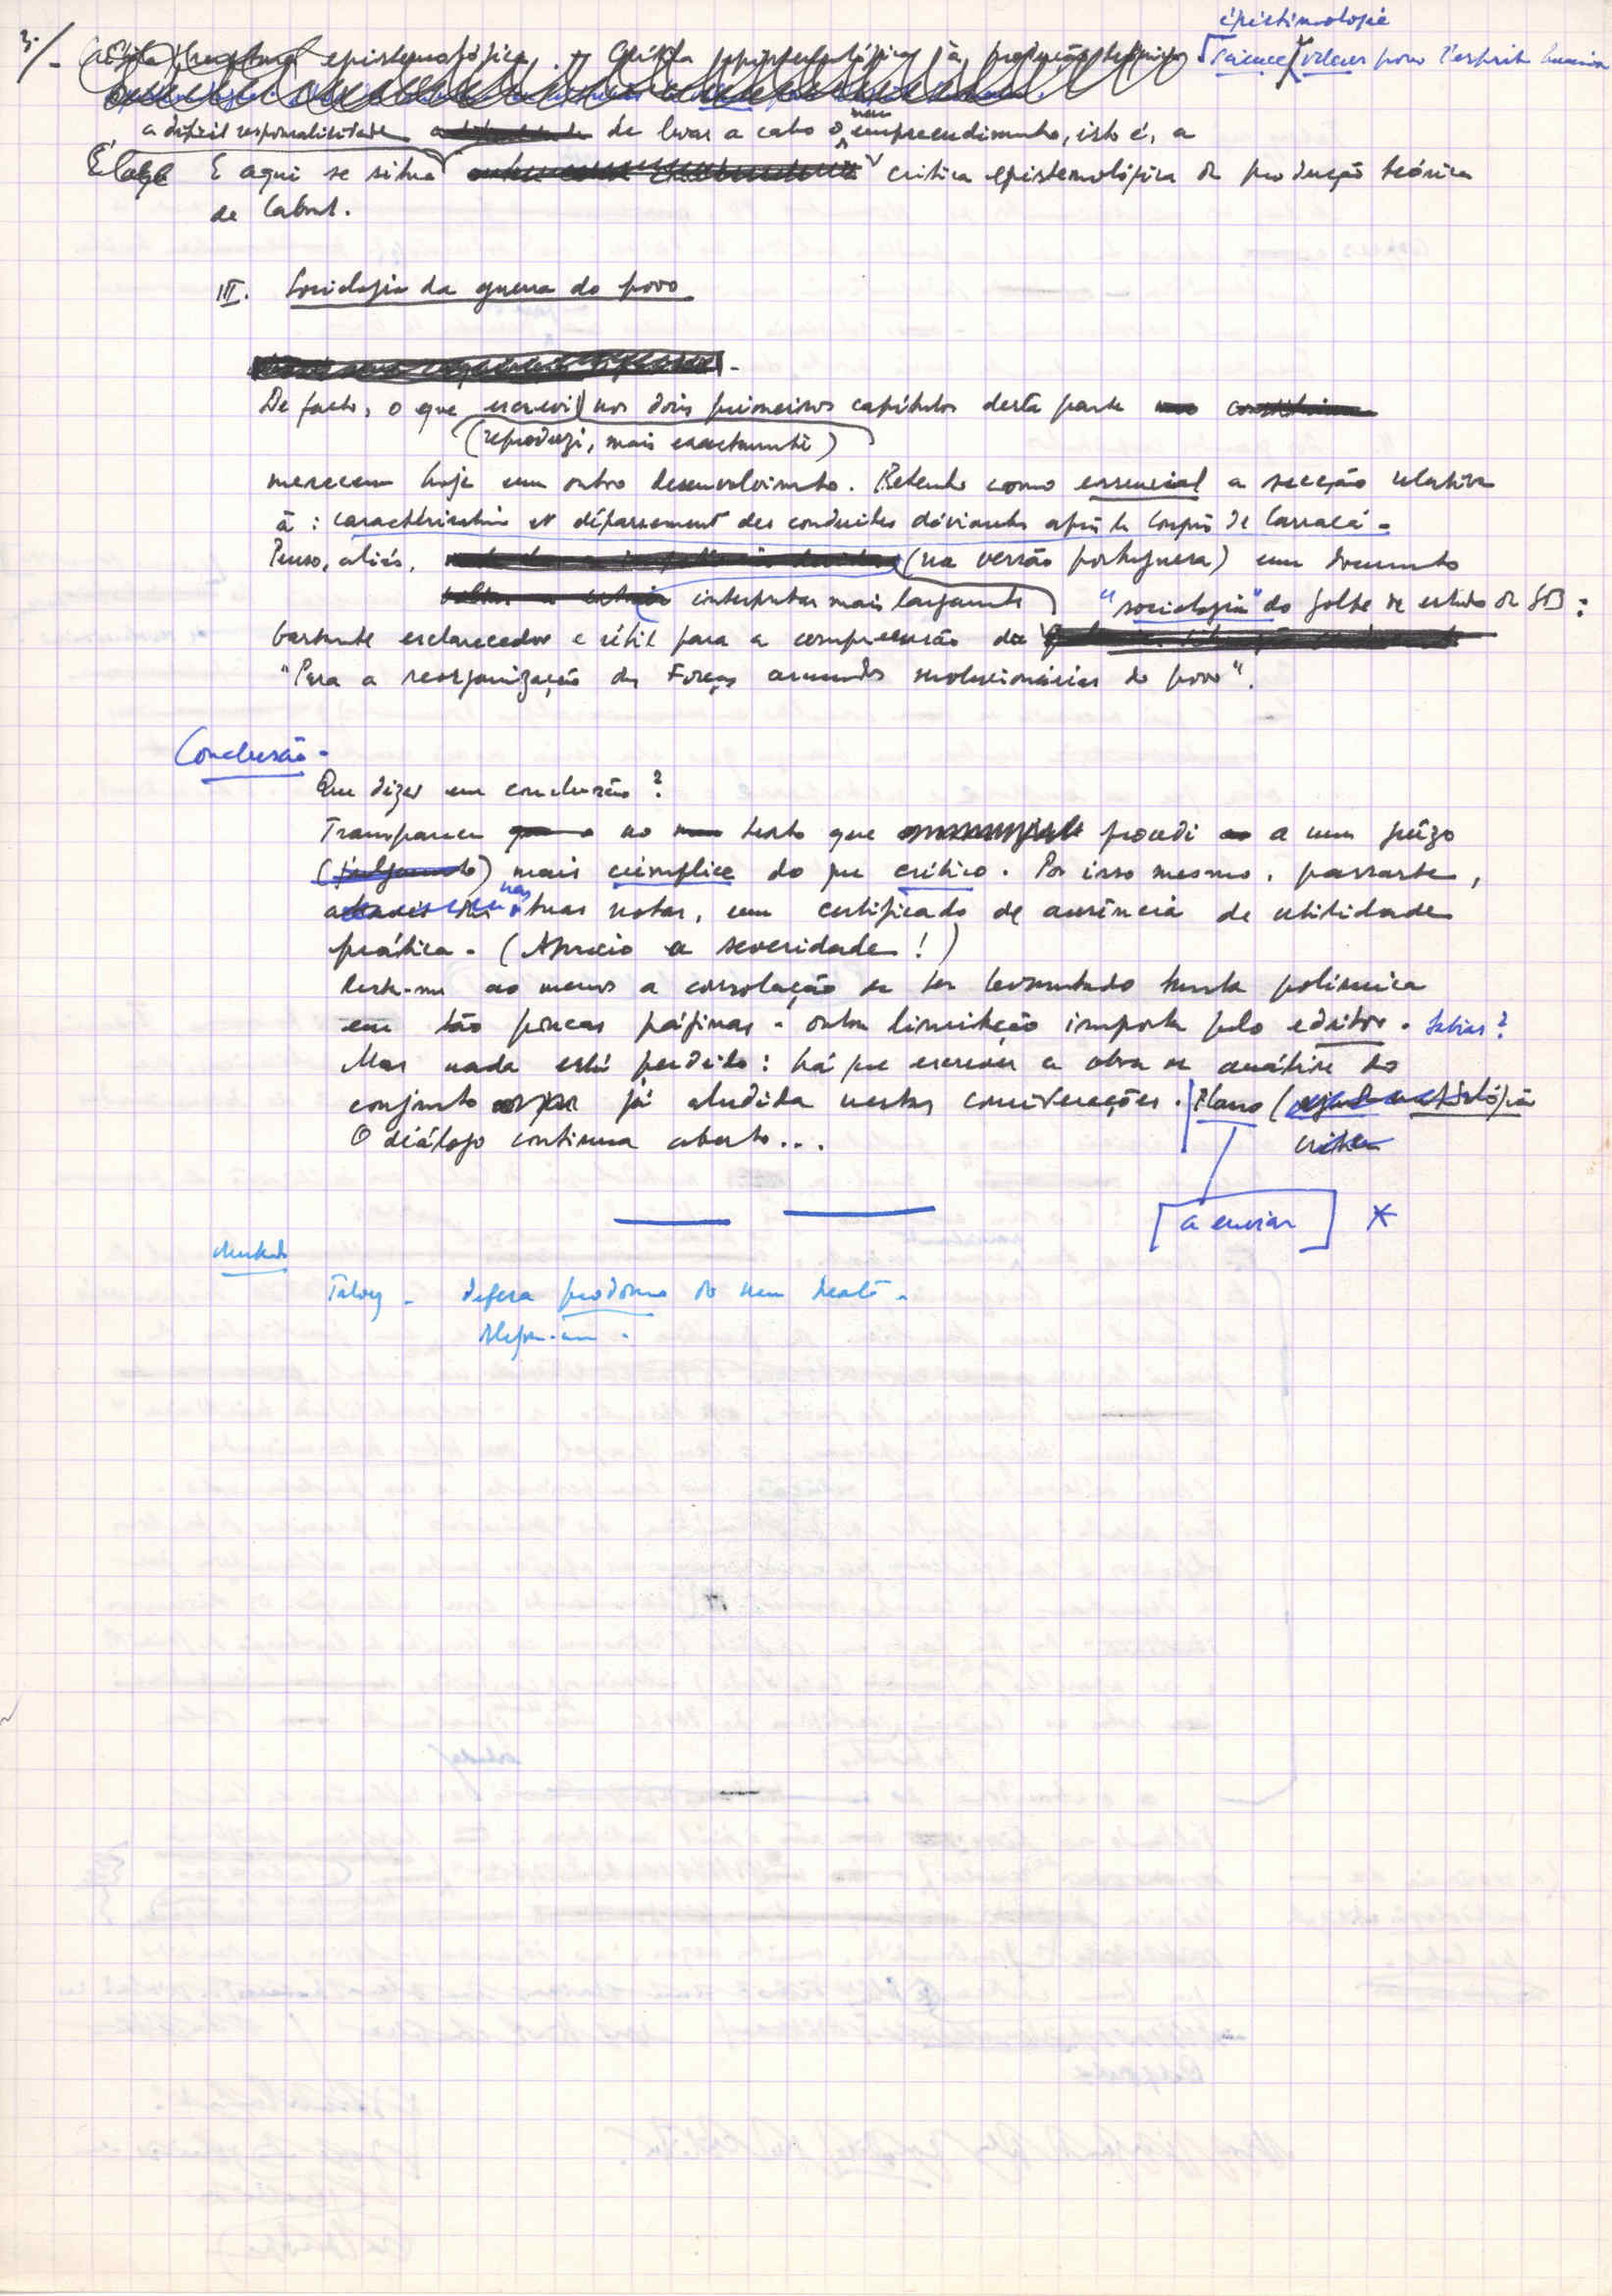 3./-
épistimologie
science valeur pour l'esprit humain
a difícil responsabilidade de levar a cabo o meu empreendimento, isto é, a
E aqui se situa crítica epistemológica da produção teórica
de Cabral.
III. Sociologia da guerra do povo
De facto, o que escrevi nos dois primeiros capítulos desta parte
(reproduzi, mais exactamente)
merecem hoje um outro desenvolvimento. Retenho como essencial a secção relativa
à : caractéristiques et dépassement des conduites déviantes après le Congrès de Cassacá -
Penso, aliás, (na versão portuguesa) um documento
interpretar mais largamente "sociologia" do golpe de estado da GB :
bastante esclarecedor e útil para a compreensão da
"Para a reorganização das Forças armadas revolucionárias do povo".
Conclusão -
Que dizer em conclusão ?
Transparece no texto que procedi a um juízo
mais cúmplice do que crítico. Por isso mesmo, passaste,
nas tuas notas, um certificado de ausência de utilidade
prática. (Aprecio a severidade !)
Resta-me ao menos a consolação de ter levantado tanta polémica
em tão poucas páginas - outra limitação imposta pelo editor. Sabias ?
Mas nada está perdido : há que escrever a obra de análise do
conjunto já aludida nestas conversações. Plano (
O diálogo continua aberto...
[a enviar] *
Talvez - defesa do meu texto -